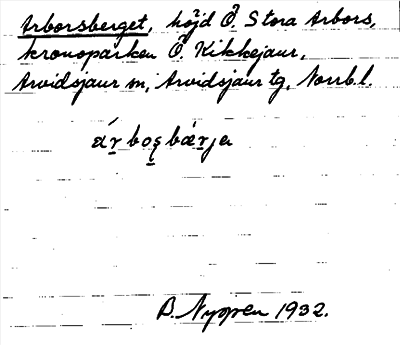 Arborsberget, höjd Ö. Stora Arbors,
kronoparken Ö. Kikkejaur,
Arvidsjaur sn, Arvidsjaur tg, Norrb.l.
árboʂbærja
B. Nygren 1932.